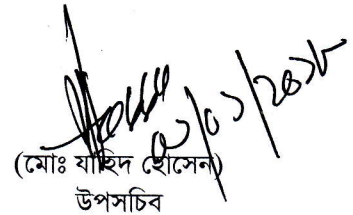 ০১/০১/২০১৮
(মোঃ যাহিদ হোসেন)
উপসচিব